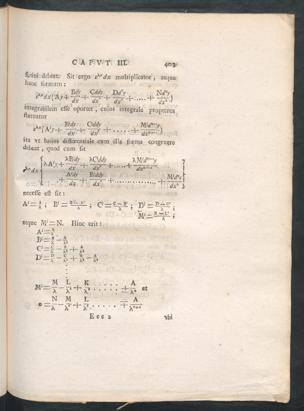 CAPVT III. 403
fieri debet. Sit ergo e^{λx} dx multiplicator, atque
hanc formam:
e^{λx} dx (A y + \frac{B dy}{dx} + \frac{C ddy}{dx^2} + \frac{D d^3 y}{dx^3} + ..... + \frac{N d^n y}{dx^n})
integrabilem esse oportet, cuius integrale propterea
statuatur
e^{λx} (A^I y + \frac{B^I dy}{dx} + \frac{C^I ddy}{dx^2} + ..... + \frac{M^I d^{n-1} y}{dx^{n-1}})
ita vt huius differentiale cum illa forma congruere
debeat, quod cum sit
e^{λx} dx { λA^I y + \frac{λB^I dy}{dx} + \frac{λC^I ddy}{dx^2} + .... + \frac{λM^I d^{n-1} y}{dx^{n-1}}
+ \frac{A^I dy}{dx} + \frac{B^I ddy}{dx^2} + .......... + \frac{M^I d^n y}{dx^n} }
necesse est sit:
A^I = \frac{A}{λ}; B^I = \frac{B - A^I}{λ}; C^I = \frac{C - B^I}{λ}; D^I = \frac{D - C^I}{λ};
M^I = \frac{M - L^I}{λ};
atque M^I = N. Hinc erit:
A^I = \frac{A}{λ}
B^I = \frac{B}{λ} - \frac{A}{λ^2}
C^I = \frac{C}{λ} - \frac{B}{λ^2} + \frac{A}{λ^3}
D^I = \frac{D}{λ} - \frac{C}{λ^2} + \frac{B}{λ^3} - \frac{A}{λ^4}
M^I = \frac{M}{λ} - \frac{L}{λ^2} + \frac{K}{λ^3} ...... ± \frac{A}{λ^n} et
o = \frac{N}{λ} - \frac{M}{λ^2} + \frac{L}{λ^3} ...... ∓ \frac{A}{λ^{n+1}}
Eee 2 vbi